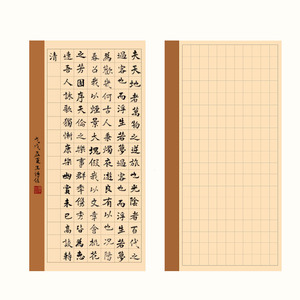 夫天地者萬物之逆旅也光陰者百代之
過客也而浮生若夢過客也而浮生若夢
為歡幾何古人秉燭夜遊良有以也況陽
春召我以煙景大塊假我以文章會桃花
之芳園序天倫之樂事群季俊秀皆為惠
連吾人詠歌獨慚康樂幽賞未已高談轉
清